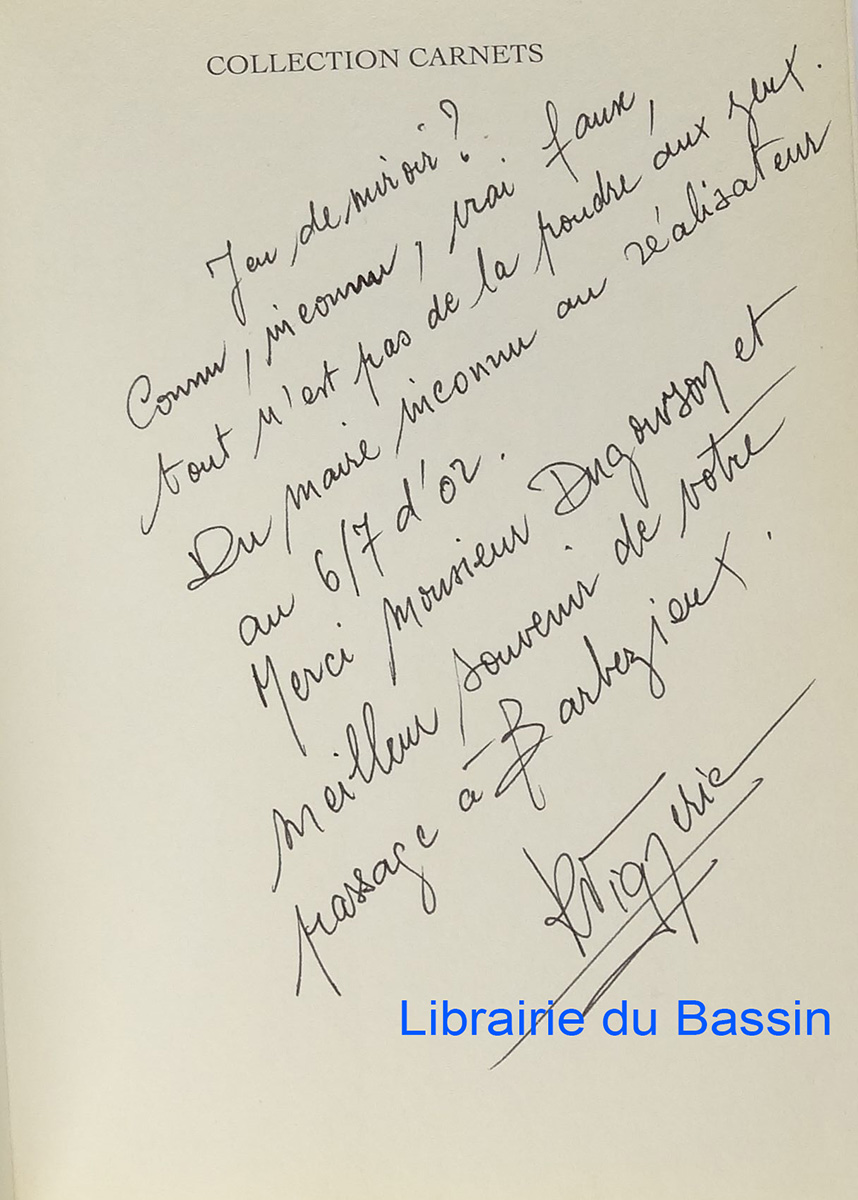 COLLECTION CARNETS
Jeu de miroir ?
Connu, inconnu, vrai faux,
tout n'est pas de la poudre aux yeux.
Du maire inconnu au réalisateur
au 6/7 d'or.
Merci Monsieur Dugowson et
meilleur souvenir de votre
passage à Barbezieux.
Librairie du Bassin